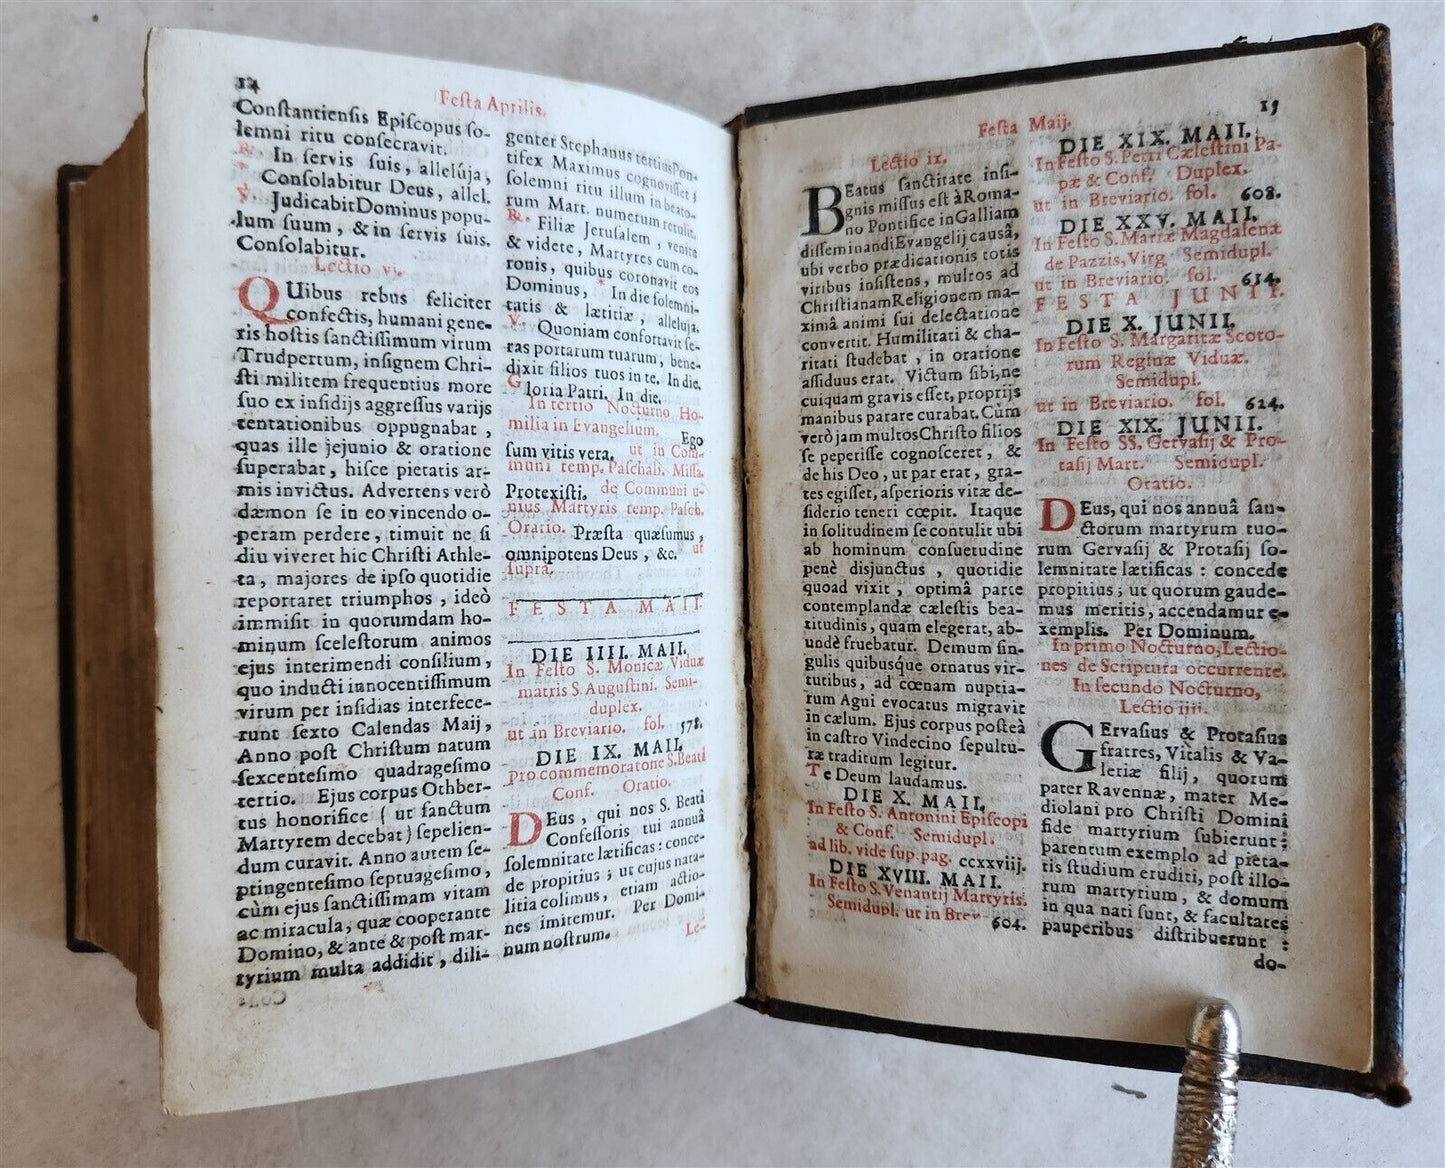 14
Festa Aprilis.
Constantiensis Episcopus so-
lemni ritu consecravit.
℟. In servis suis, allelúja,
Consolabitur Deus, allel.
℣. Judicabit Dominus popu-
lum suum, & in servis suis.
Consolabitur.
Lectio vj.
QUibus rebus feliciter
confectis, humani gene-
ris hostis sanctissimum virum
Trudpertum, insignem Chri-
sti militem frequentius more
suo ex insidijs aggressus varijs
tentationibus oppugnabat,
quas ille jejunio & oratione
superabat, hisce pietatis ar-
mis invictus. Advertens verò
dæmon se in eo vincendo o-
peram perdere, timuit ne si
diu viveret hic Christi Athle-
ta, majores de ipso quotidie
reportaret triumphos, ideò
immisit in quorumdam ho-
minum scelestorum animos
ejus interimendi consilium,
quo inducti innocentissimum
virum per insidias interfece-
runt sexto Calendas Maij,
Anno post Christum natum
sexcentesimo quadragesimo
tertio. Ejus corpus Othber-
tus honorifice ( ut sanctum
Martyrem decebat ) sepelien-
dum curavit. Anno autem se-
ptingentesimo septuagesimo,
cùm ejus sanctissimam vitam
ac miracula, quæ cooperante
Domino, & ante & post mar-
tyrium multa addidit, dili-
genter Stephanus tertius Pon-
tifex Maximus cognovisset;
solemni ritu illum in beato-
rum Mart. numerum retulit.
℟. Filiæ Jerusalem, venite
& videte, Martyres cum co-
ronis, quibus coronavit eos
Dominus, * In die solemni-
tatis & lætitiæ, alleluja.
℣. Quoniam confortavit se-
ras portarum tuarum, bene-
dixit filios tuos in te. In die.
Gloria Patri. In die.
In tertio Nocturno Ho-
milia in Evangelium. Ego
sum vitis vera. ut in Com-
muni temp. Paschali. Missa.
Protexisti. de Communi u-
nius Martyris temp. Pasch.
Oratio. Præsta quæsumus,
omnipotens Deus, &c. ut
supra.
FESTA MAII.
DIE IIII. MAII.
In Festo S. Monicæ Viduæ
matris S. Augustini. Semi-
duplex.
ut in Breviario. fol. 578.
DIE IX. MAII.
pro commemoratone S. Beati
Conf. Oratio.
DEus, qui nos S. Beati
Confessoris tui annuâ
solemnitate lætificas: conce-
de propitius; ut cujus nata-
litia colimus, etiam actio-
nes imitemur. Per Domi-
num nostrum.
Le-
15
Festa Maij.
Lectio ix.
BEatus sanctitate insi-
gnis missus est à Roma-
no Pontifice in Galliam
disseminandi Evangelij causâ,
ubi verbo prædicationis totis
viribus insistens, multos ad
Christianam Religionem ma-
ximâ animi sui delectatione
convertit. Humilitati & cha-
ritati studebat, in oratione
assiduus erat. Victum sibi, ne
cuiquam gravis esset, proprijs
manibus parare curabat. Cùm
verò jam multos Christo filios
se peperisse cognosceret, &
de his Deo, ut par erat, gra-
tes egisset, asperioris vitæ de-
siderio teneri cœpit. Itaque
in solitudinem se contulit ubi
ab hominum consuetudine
penè disjunctus, quotidie
quoad vixit, optimâ parte
contemplandæ cælestis bea-
titudinis, quam elegerat, ab-
undè fruebatur. Demum sin-
gulis quibusque ornatus vir-
tutibus, ad cœnam nuptia-
rum Agni evocatus migravit
in cælum. Ejus corpus posteà
in castro Vindecino sepultu-
ræ traditum legitur.
Te Deum laudamus.
DIE X. MAII.
In Festo S. Antonini Episcopi
& Conf. Semidupl.
ad lib. vide sup. pag. ccxxviij.
DIE XVIII. MAII.
In Festo S. Venantij Martyris.
Semidupl. ut in Brev. 604.
DIE XIX. MAII.
In Festo S. Petri Cælestini Pa-
pæ & Conf. Duplex.
ut in Breviario. fol. 608.
DIE XXV. MAII.
In Festo S. Mariæ Magdalenæ
de Pazzis, Virg Semidupl.
ut in Breviario. fol. 614.
FESTA JUNII.
DIE X. JUNII.
In Festo S. Margaritæ Scoto-
rum Reginæ Viduæ.
Semidupl.
ut in Breviario. fol. 624.
DIE XIX. JUNII.
In Festo SS. Gervasij & Pro-
tasij Mart. Semidupl.
Oratio.
DEus, qui nos annuâ san-
ctorum martyrum tuo-
rum Gervasij & Protasij so-
lemnitate lætificas: concede
propitius; ut quorum gaude-
mus meritis, accendamur e-
xemplis. Per Dominum.
In primo Nocturno, Lectio-
nes de Scriptura occurrente.
In secundo Nocturno,
Lectio iiij.
GErvasius & Protasius
fratres, Vitalis & Va-
leriæ filij, quorum
pater Ravennæ, mater Me-
diolani pro Christi Domini
fide martyrium subierunt:
parentum exemplo ad pieta-
tis studium eruditi, post illo-
rum martyrium, & domum
in qua nati sunt, & facultates
pauperibus distribuerunt:
do-